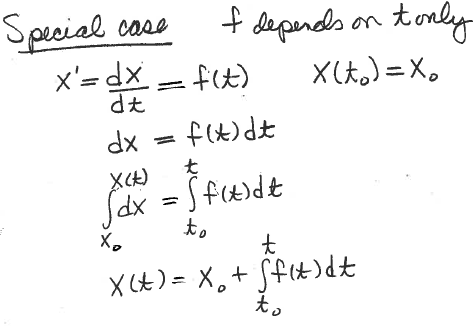 Special case f depends on t only
x' = dx/dt = f(t) x(t₀) = x₀
dx = f(t) dt
∫_{x₀}^{x(t)} dx = ∫_{t₀}^{t} f(t) dt
x(t) = x₀ + ∫_{t₀}^{t} f(t) dt